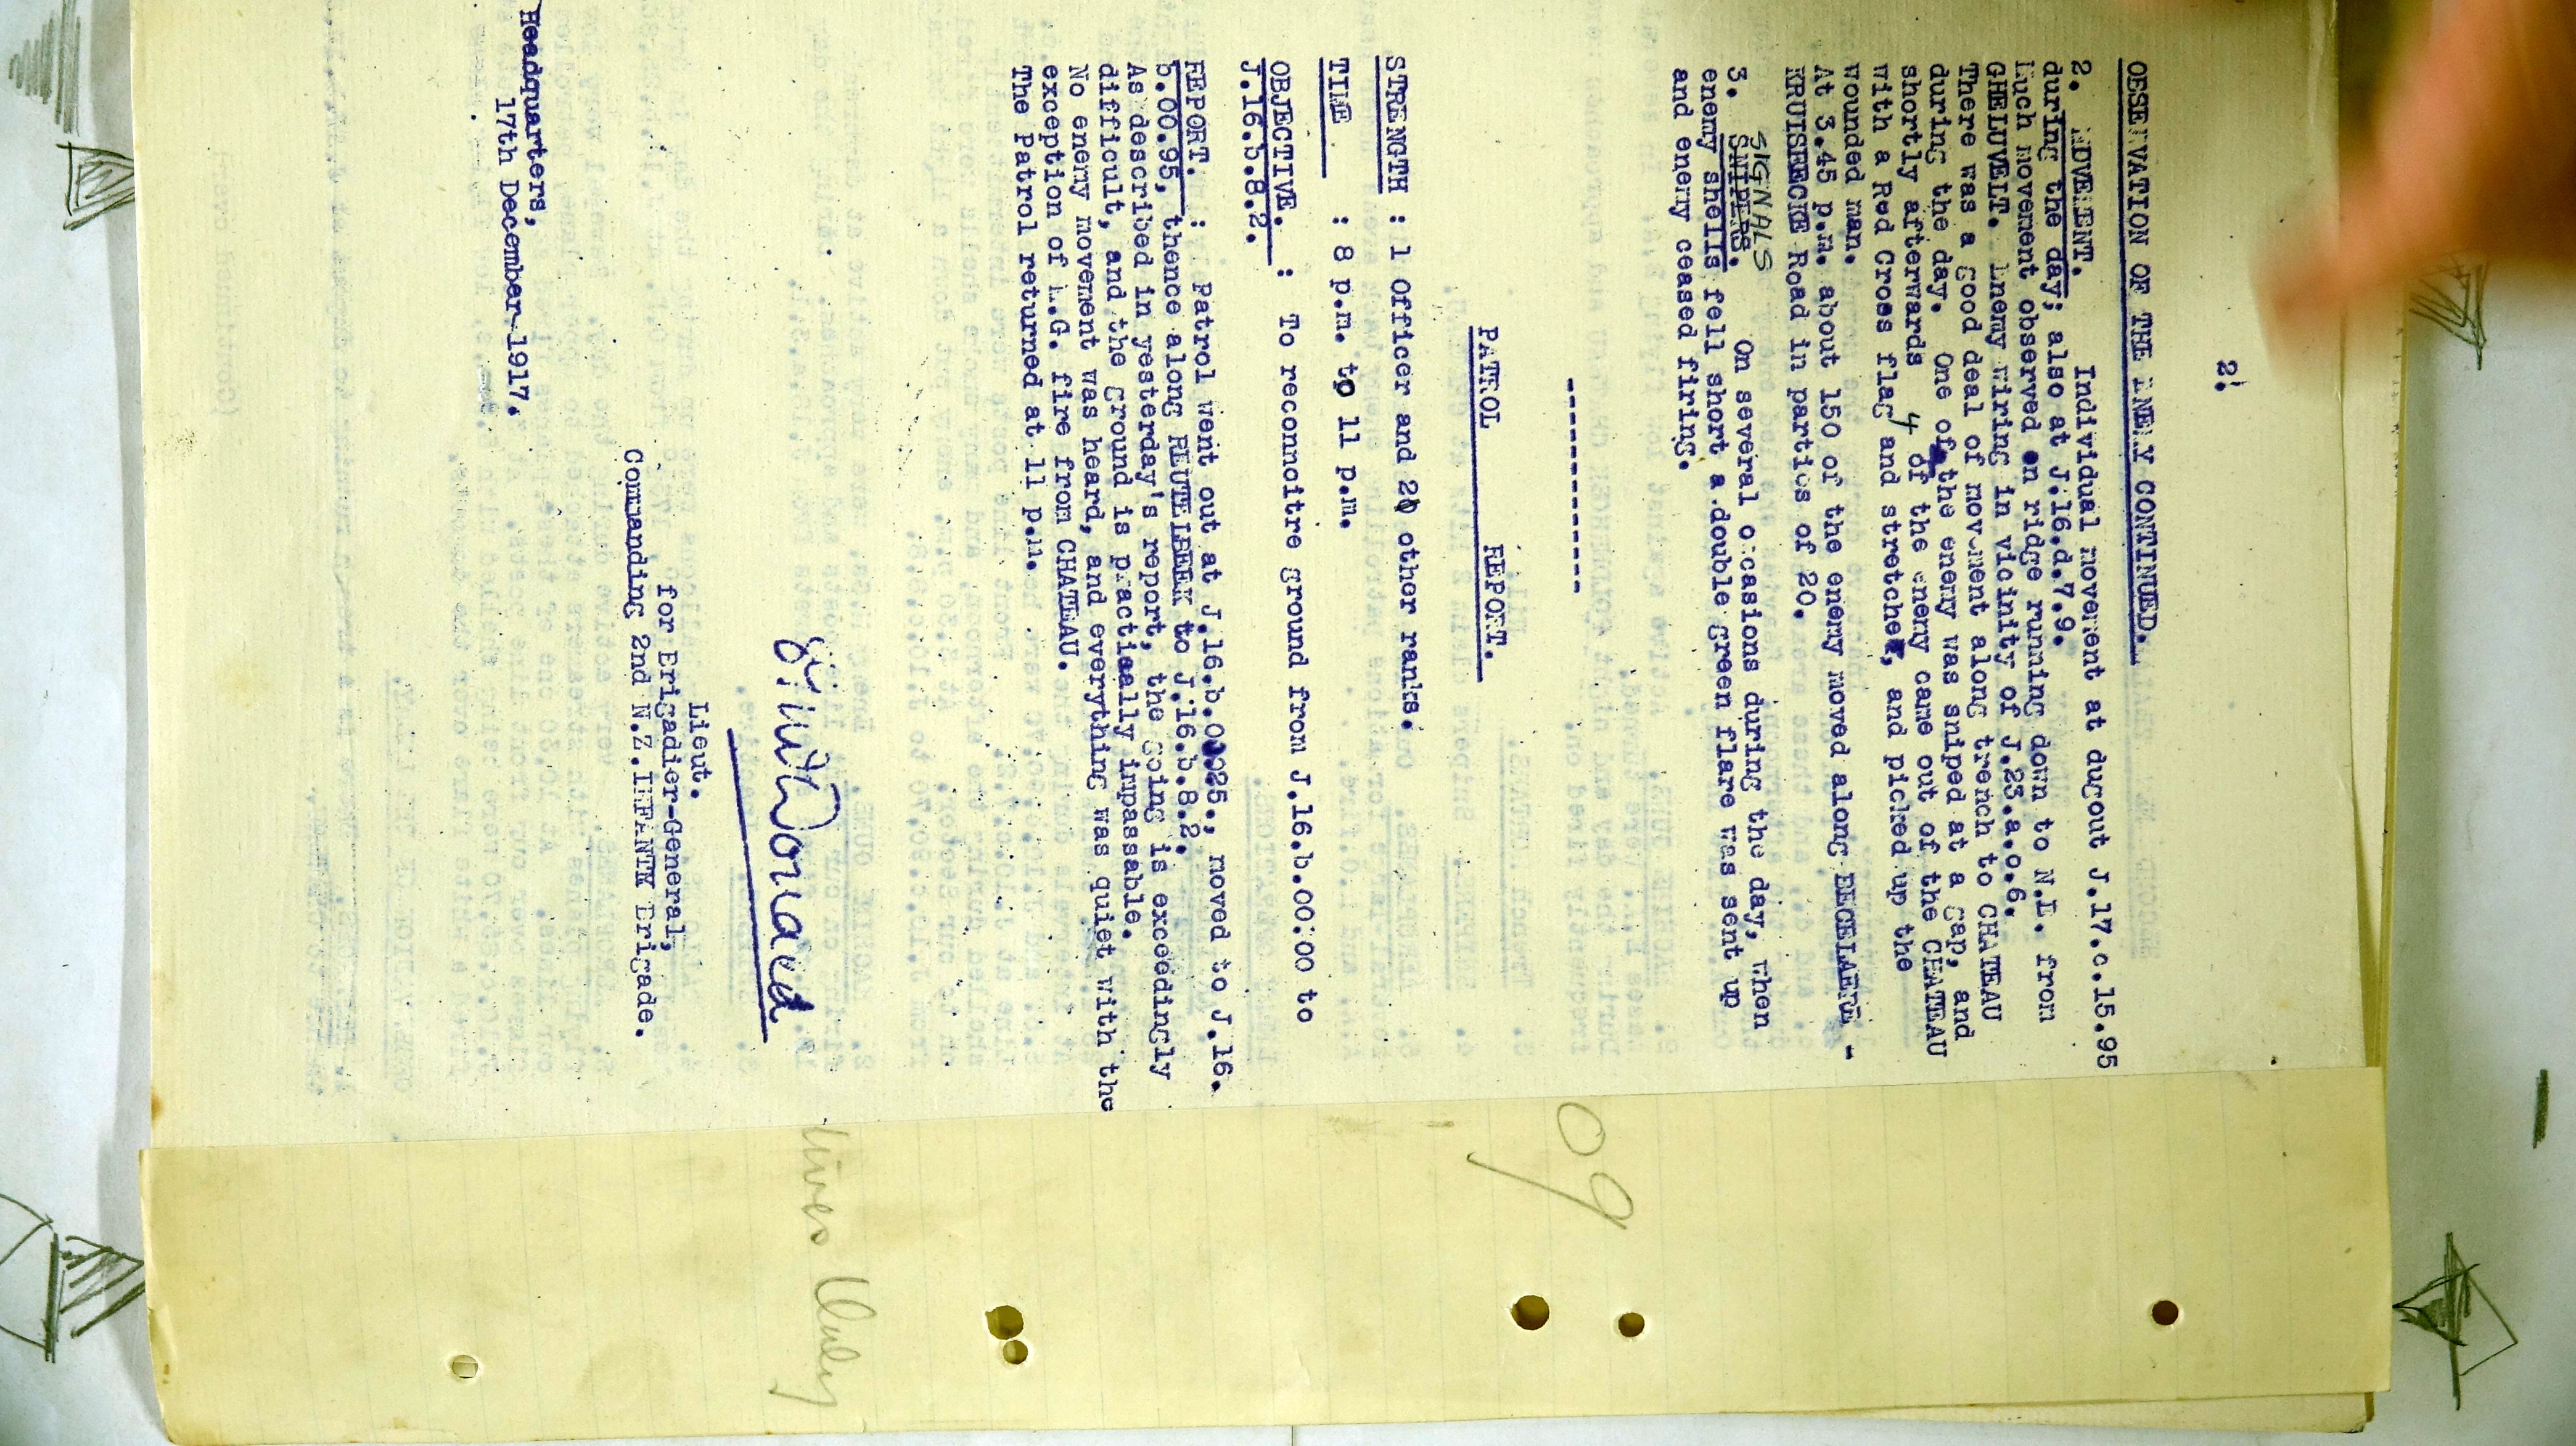 2.
OBSERVATION OF THE ENEMY CONTINUED.
2. MOVEMENT. Individual movement at dugout J.17.c.15.95
during the day; also at J.16.d.7.9.
Much movement observed on ridge running down to N.E. from
GHELUVELT. Enemy wiring in vicinity of J.23.a.o.6.
There was a good deal of movement along trench to CHATEAU
during the day. One of the enemy was sniped at a gap, and
shortly afterwards 4 of the enemy came out of the CHATEAU
with a Red Cross flag and stretcher, and picked up the
wounded man.
At 3.45 p.m. about 150 of the enemy moved along BECELAERE -
KRUISEECKE Road in parties of 20.
SIGNALS
3. SNIPERS. On several occasions during the day, when
enemy shells fell short a double green flare was sent up
and enemy ceased firing.
------------
PATROL REPORT.
STRENGTH : 1 Officer and 20 other ranks.
TIME : 8 p.m. to 11 p.m.
OBJECTIVE. : To reconnoitre ground from J.16.b.00:00 to
J.16.b.8.2.
REPORT. : Patrol went out at J.16.b.0025., moved to J.16.
b.00.95, thence along REUTELBEEK to J.16.b.8.2.
As described in yesterday's report, the going is exceedingly
difficult, and the ground is practically impassable.
No enemy movement was heard, and everything was quiet with the
exception of M.G. fire from CHATEAU.
The Patrol returned at 11 p.m.
Lieut.
for Brigadier-General,
Commanding 2nd N.Z.INFANTRY Brigade.
Headquarters,
17th December 1917.